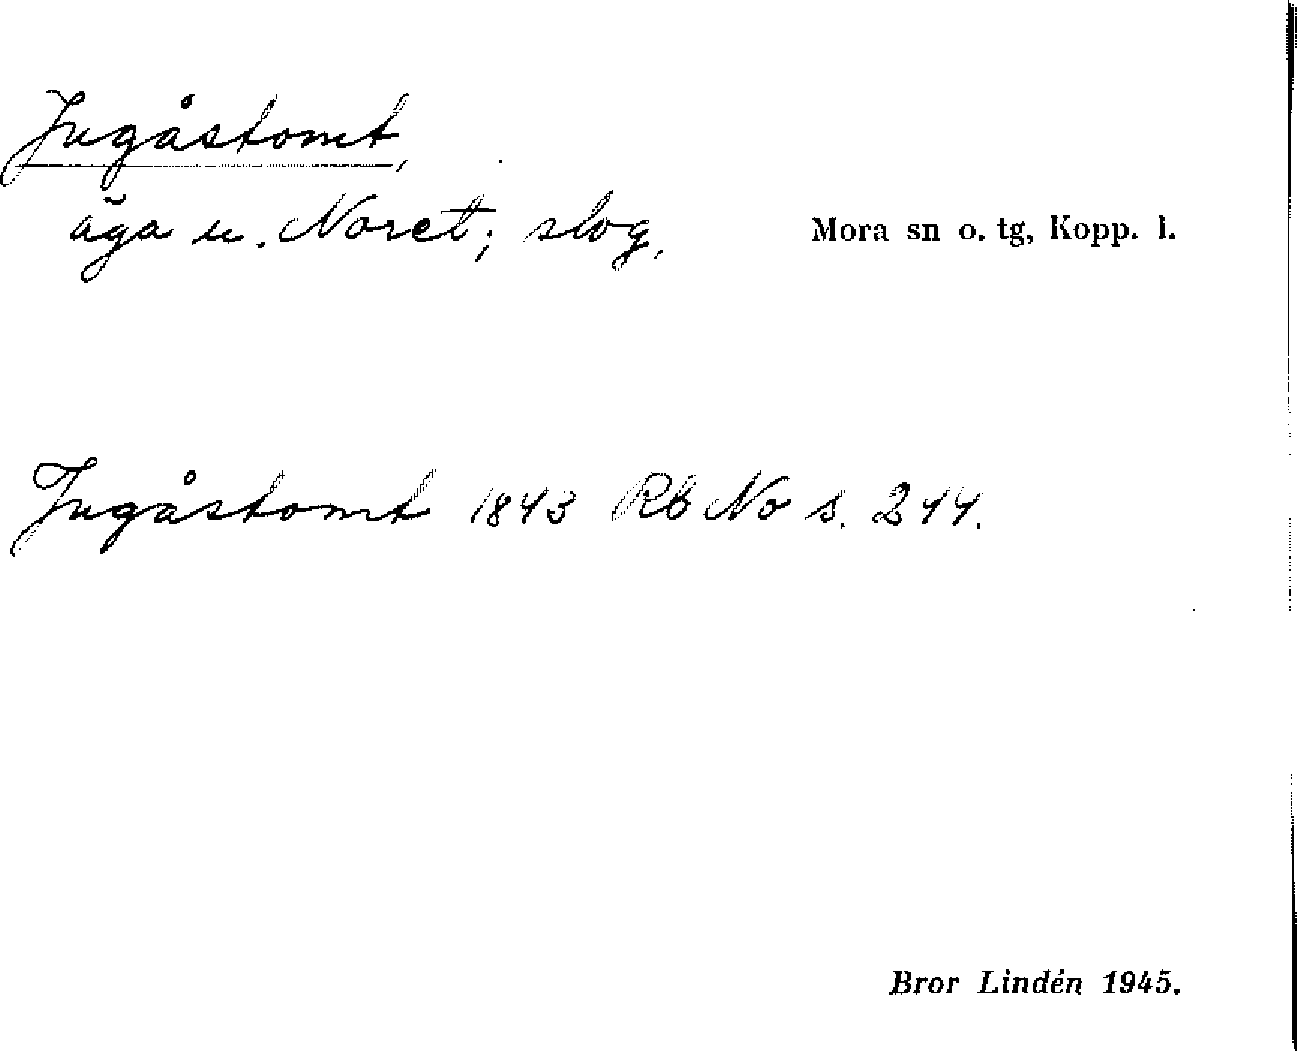 Jugåstomt,
äga u. Noret; slog.
Mora sn o. tg, Kopp. l.
Jugåstomt 1843 Rb No s. 244.
Bror Lindén 1945.